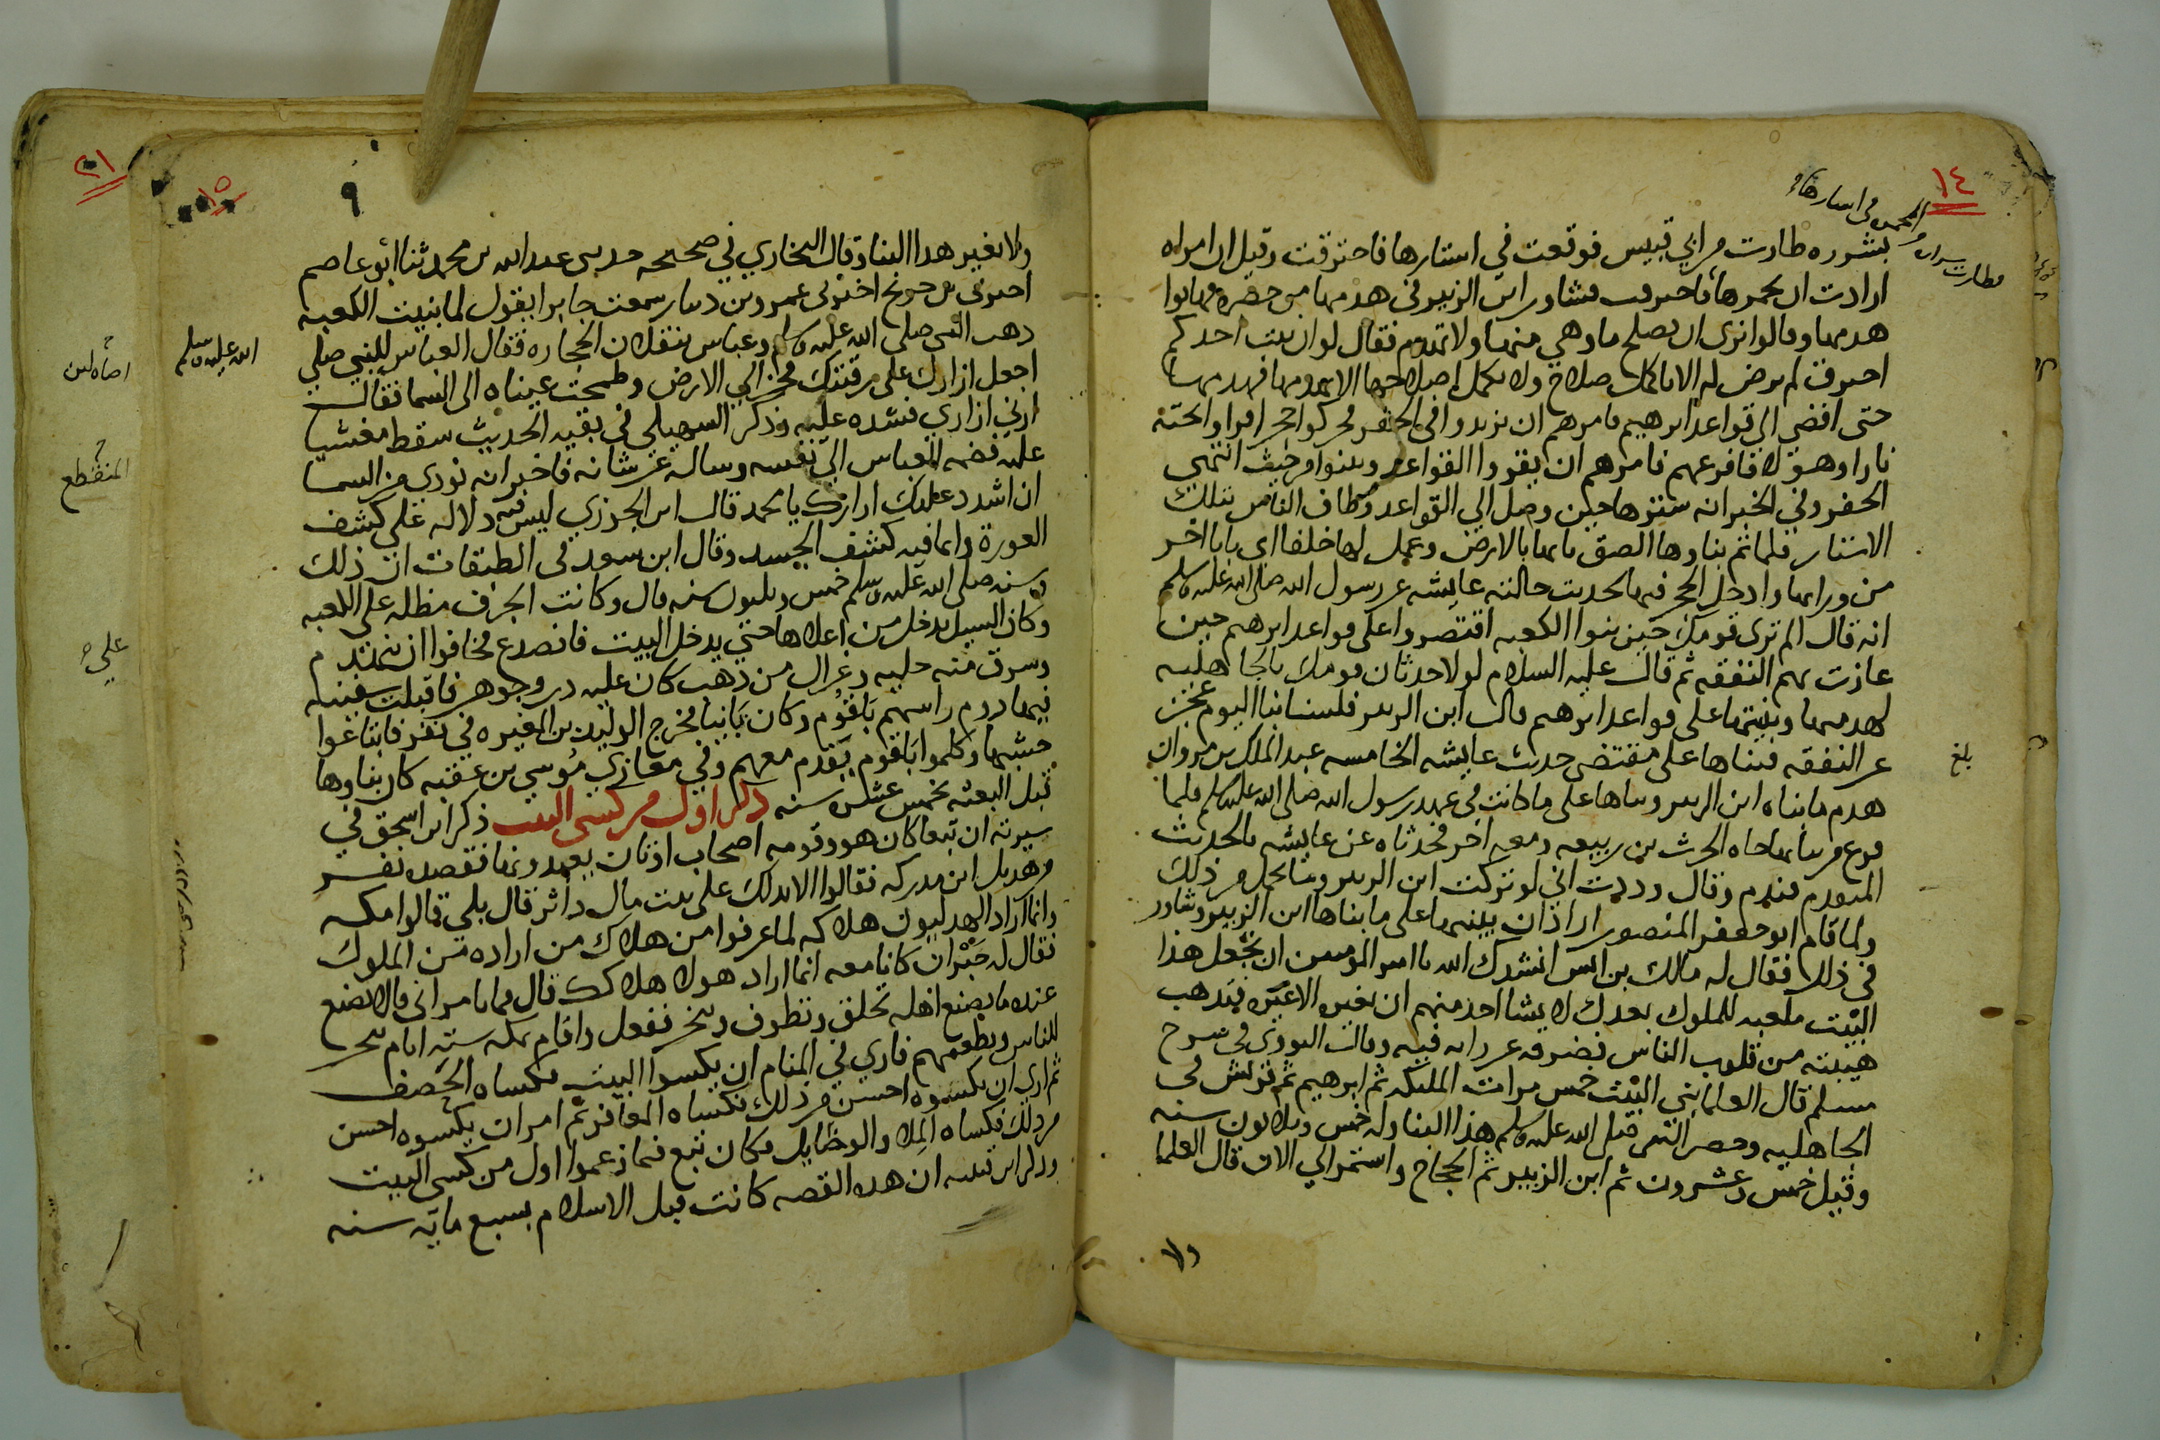 ١٤
بشرره طارت من ابي قبيس فوقعت في استارها فاحترقت وقيل ان امراه
ارادت ان تجمرها فاحترقت فشاور ابن الزبير في هدمها من حضره فهابوا
هدمها وقالوا نرى ان يصلح ما وهي منها ولا تهدم فقال لو ان بيت احدكم
احترق لم يرض له الا باكمل صلاح ولا يكمل اصلاحها الا بهدمها فهدمها
حتى افضي الي قواعد ابرهيم فامرهم ان يزيدوا في الحفر فحركوا حجرا فراوا تحته
نارا وهولا فافزعهم فامرهم ان يقروا القواعد ويبنوا من حيث انتهي
الحفر وفي الخبر انه سترها حين وصل الي القواعد وطاف الناس بتلك
الاستار فلما تم بناوها الصق بابها بالارض وعمل لها خلفا اي بابا اخر
من ورايها وادخل الحجر فيها لحديث خالته عايشه عن رسول الله صلى الله عليه وسلم
انه قال الم تري قومك حين بنوا الكعبه اقتصروا على قواعد ابرهيم حين
عازت بهم النفقه ثم قال عليه السلام لولا حدثان قومك بالجاهليه
لهدمتها وبنيتها على قواعد ابرهيم قال ابن الزبير فلسنا بنا اليوم عجز
عن النفقه فبناها على مقتضى حديث عايشه الخامسه عبد الملك بن مروان
بلغ
هدم ما بناه ابن الزبير وبناها على ما كانت في عهد رسول الله صلى الله عليه وسلم فلما
فرغ من بنايها جاه الحرث بن ربيعه ومعه اخر فحدثاه عن عايشه بالحديث
المتقدم فندم وقال وددت اني لو تركت ابن الزبير وما تحمل من ذلك
ولما قام ابو جعفر المنصور اراد ان يبنيها على ما بناها ابن الزبير وشاور
في ذلك فقال له مالك بن انس انشدك الله يا امير المومنين ان تجعل هذا
البيت ملعبه للملوك بعدك لا يشا احد منهم ان يغيره الا غيره فتذهب
هيبته من قلوب الناس فصرفه عن رايه فيه وقال النووي في شرح
مسلم قال العلما بني البيت خمس مرات الملئكه ثم ابرهيم ثم قريش في
الجاهليه وحضر النبي صلى الله عليه وسلم هذا البنا وله خمس وثلاثون سنه
وقيل خمس وعشرون ثم ابن الزبير ثم الحجاج واستمر الي الان قال العلما
ولا
٩
١٥
٢١
ولا يغير هذا البنا وقال البخاري في صحيحه حدثني عبد الله بن محمد ثنا ابو عاصم
اخبرني بن جريج اخبرني عمرو بن دينار سمعت جابرا يقول لما بنيت الكعبه
ذهب النبي صلى الله عليه وسلم وعباس ينقلان الحجاره فقال العباس للنبي صلي
الله عليه وسلم
اجعل ازارك على رقبتك فخر الي الارض وطمحت عيناه الى السما فقال
ارني ازاري فشده عليه وذكر السهيلي في بقيه الحديث سقط مغشيا
عليه فضمه العباس الي نفسه وساله عن شانه فاخبر انه نودي من السما
المنقطع
ان اشدد عليك ازارك يا محمد قال ابن الجوزي ليس فيه دلاله على كشف
العورة وانما فيه كشف الجسد وقال ابن سعد في الطبقات ان ذلك
وسنه صلى الله عليه وسلم خمس وثلثون سنه قال وكانت الجرف مظله على الكعبه
وكان السيل يدخل من اعلاها حتي يدخل البيت فانصدع فخافوا ان ينهدم
على
وسرق منه حليه وغزال من ذهب كان عليه در وجوهر فاقبلت سفينه
فيها روم راسهم باقوم وكان بانيا فخرج الوليد بن المغيره في نفر فابتاعوا
خشبها وكلموا باقوم يقدم معهم وفي مغازي موسي بن عقبه كان بناوها
قبل البعثه بخمس عشره سنه ذكر اول من كسى البيت ذكر ابن اسحق في
سيرته ان تبعا كان هو وقومه اصحاب اوثان يعبدونها فقصده نفر
من هذيل ابن مدركه فقالوا الا ندلك على بيت مال داثر قال بلي قالوا مكه
وانما اراد الهذليون هلاكه لما عرفوا من هلاك من اراده من الملوك
فقال له حبران كانا معه انما اراد هولا هلاكك قال فما تامراني قالا تصنع
عنده ما يصنع اهله تحلق وتطوف وتنحر ففعل واقام بمكه سته ايام ينحر
للناس ويطعمهم فاري في المنام ان يكسوا البيت فكساه الخصف
ثم اري ان يكسوه احسن من ذلك فكساه المعافر ثم امر ان يكسوه احسن
من ذلك فكساه الملا والوصايل وكان تبع فيما زعموا اول من كسي البيت
وذكر ابن قتيبه ان هذه القصه كانت قبل الاسلام بسبع مايه سنه